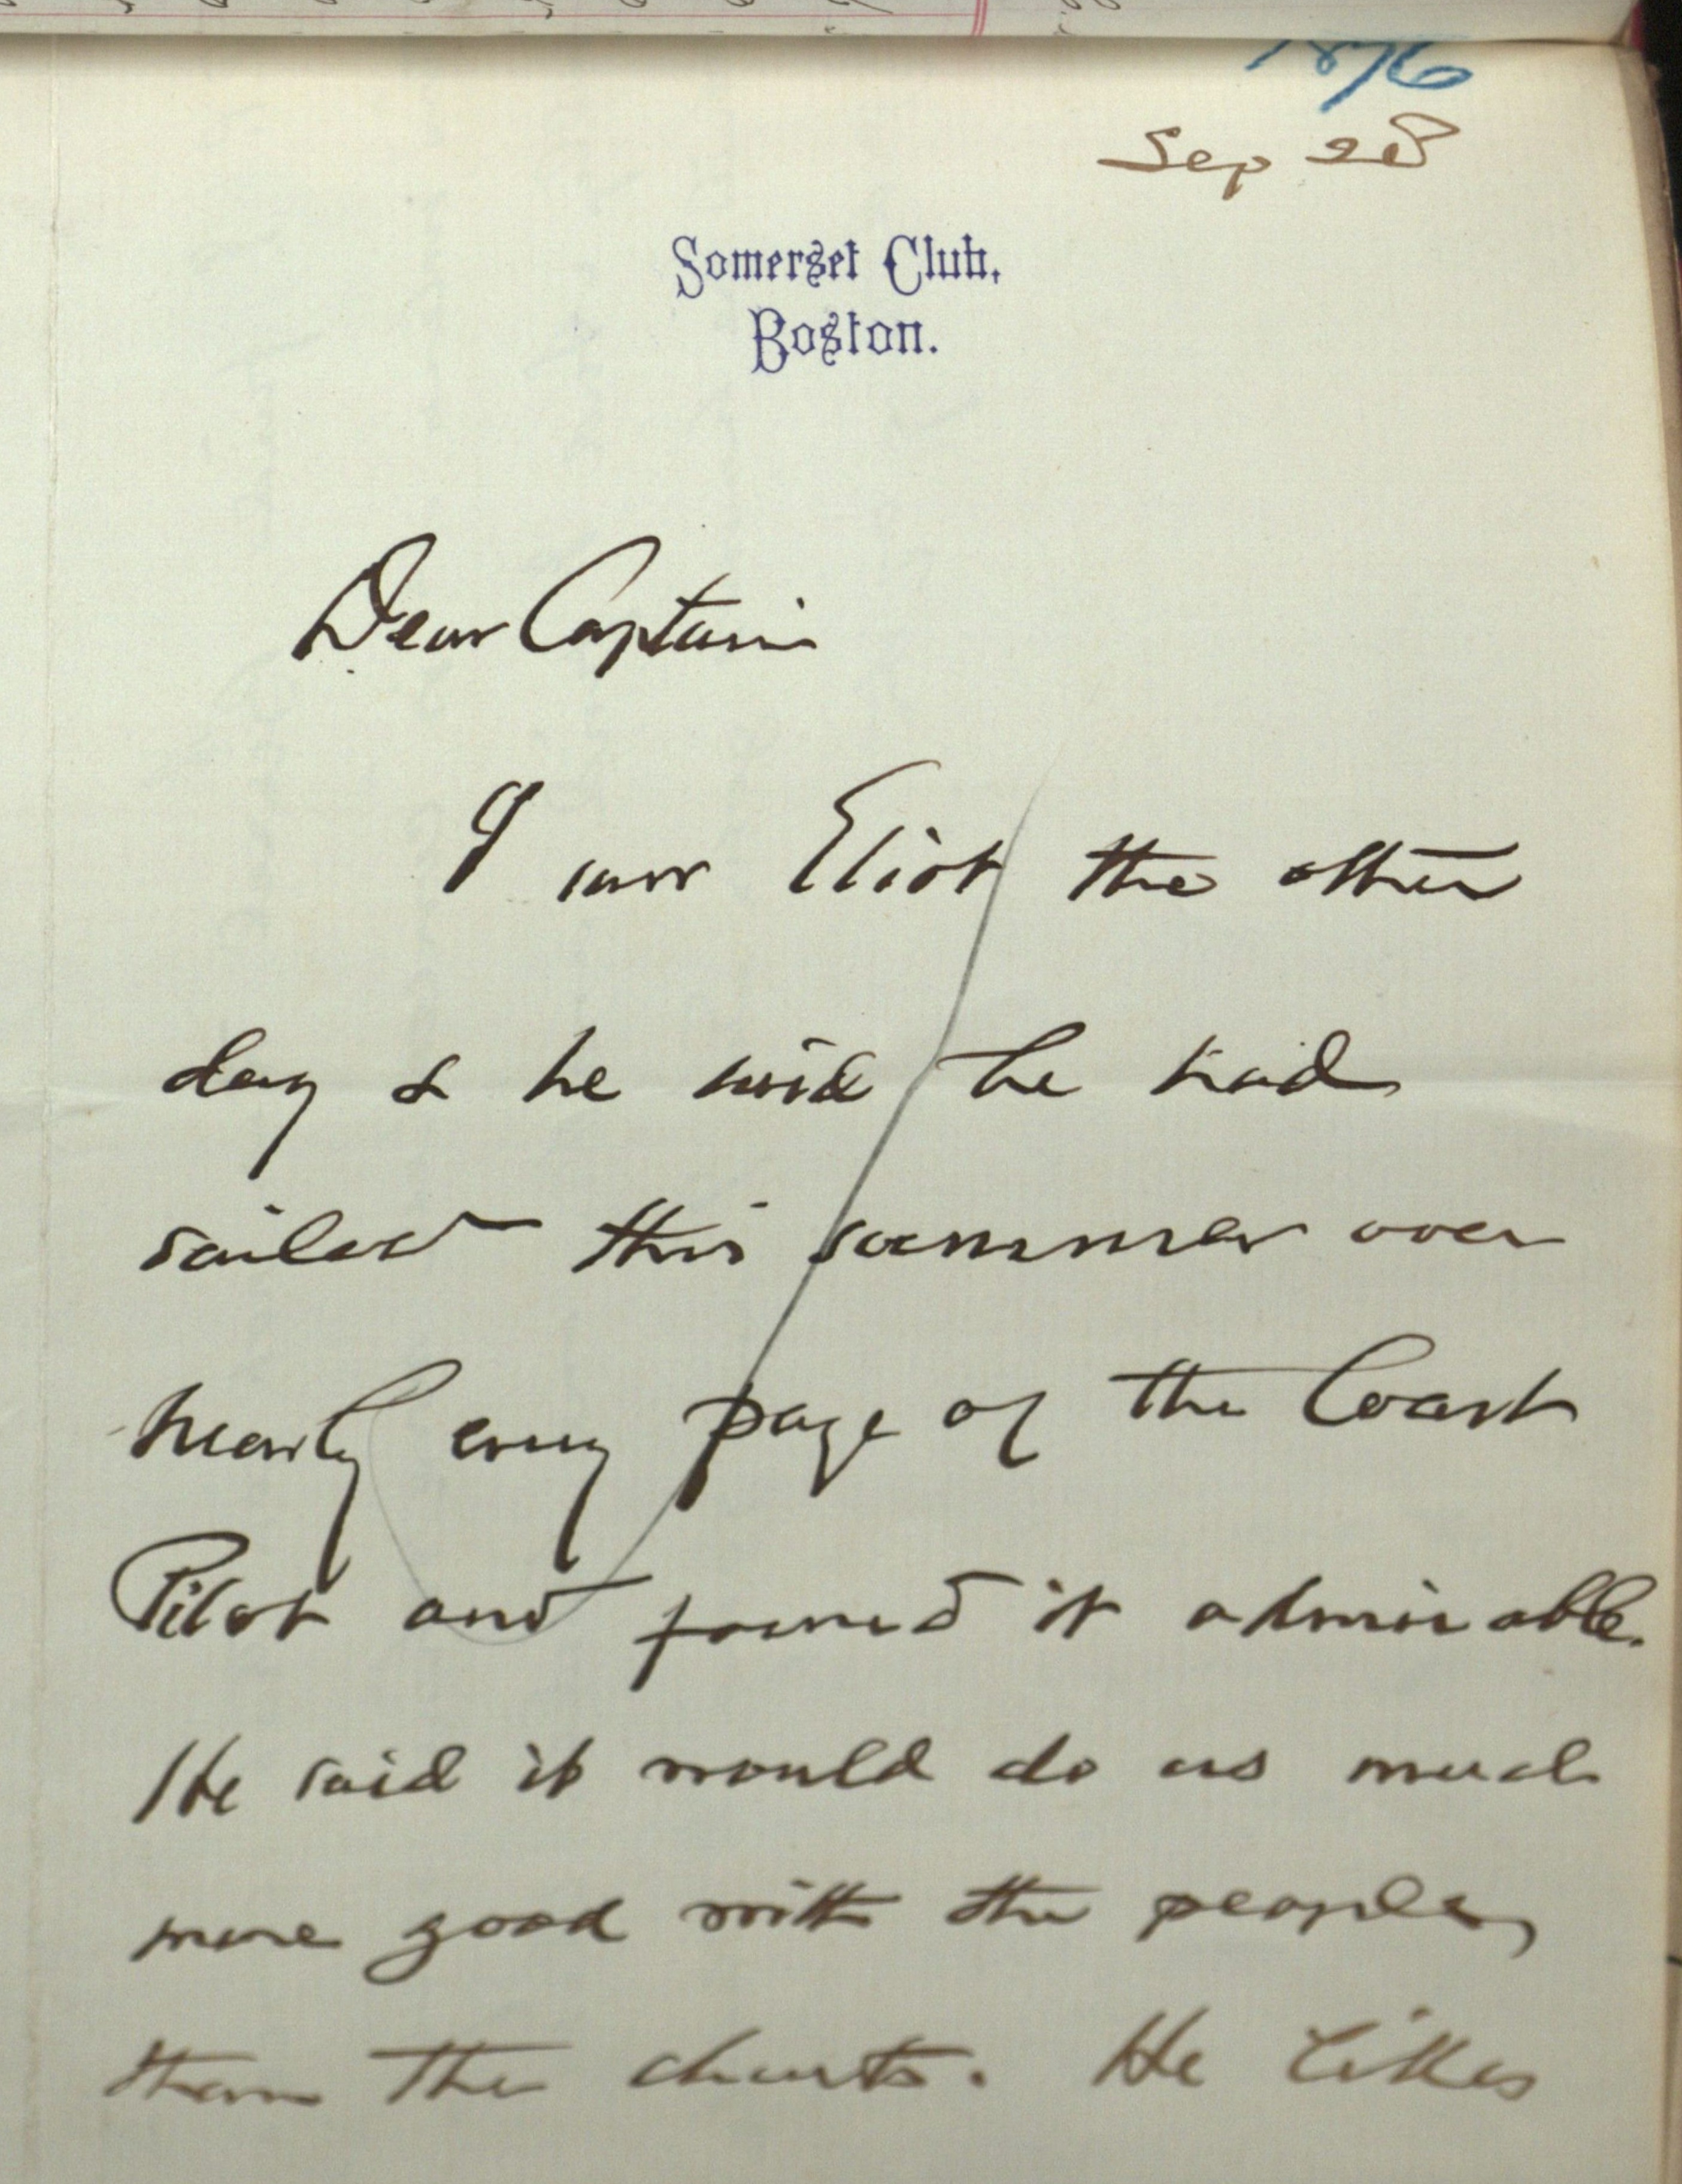 1876
Sep 28
Somerset Club,
Boston.
Dear Captain
I saw Eliot the other
day & he said he had
sailed this summer over
nearly every page of the Coast
Pilot and found it admirable.
He said it would do us much
more good with the people,
than the charts. He likes